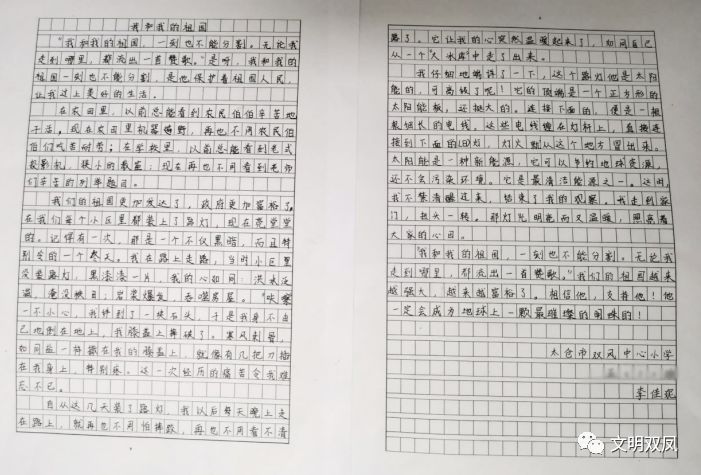 我和我的祖国
“我和我的祖国，一刻也不能分割。无论我
走到哪里，都流出一首赞歌。”是呀，我和我的
祖国一刻也不能分割，是他保护着祖国人民，
让我过上美好的生活。
在农田里，以前总能看到农民伯伯辛苦地
干活，现在农田里机器遍野，再也不用农民伯
伯们吃苦耐劳；在学校里，以前总能看到老式
投影机，狭小的教室；现在再也不用看到老师
们辛苦的列举题目。
我们的祖国更加发达了，政府更加富裕了，
在我们每个小区里都装上了路灯，现在亮堂堂
的。记得有一次，那是一个不仅黑暗，而且特
别冷的一个冬天。我在路上走路，当时小区里
没装路灯，黑漆漆一片，我的心如同：洪水泛
滥，淹没稼田；岩浆爆发，吞噬房屋。“哎哟
一不小心，我绊到了一块石头，于是我身不由
己地倒在地上，我膝盖上摔破了。寒风刺骨，
如同盐一样撒在我的膝盖上，就像有几把刀插
在我身上，特别疼。这一次经历的痛苦令我难
忘不已。
自从这几天装了路灯，我以后每天晚上走
在路上，就再也不用怕摔跤，再也不用看不清
路了。它让我的心突然温暖起来了，如同自己
从一个“大水库”中走了出来。
我仔细地端详了一下，这个路灯他是太阳
能的，可高级了呢！它的顶端是一个正方形的
太阳能板，还挺大的。连接下面的，便是一根
根细长的电线，这些电线缠在灯杆上，直接连
接到下面的LED灯，灯火就从这个地方冒出来。
太阳能是一种新能源，它可以节约地球资源，
还不会污染环境。它是最清洁能源之一。这时，
我不禁清醒过来，结束了我的观察。我走到家
门，扭头一转。那灯光明亮而又温暖，照亮着
大家的心田。
“我和我的祖国，一刻也不能分割。无论我
走到哪里，都流出一首赞歌。”我们的祖国越来
越强大，越来越富裕了。相信他，支持他！他
一定会成为地球上一颗最璀璨的明珠的！
太仓市双凤中心小学
李佳妮
文明双凤